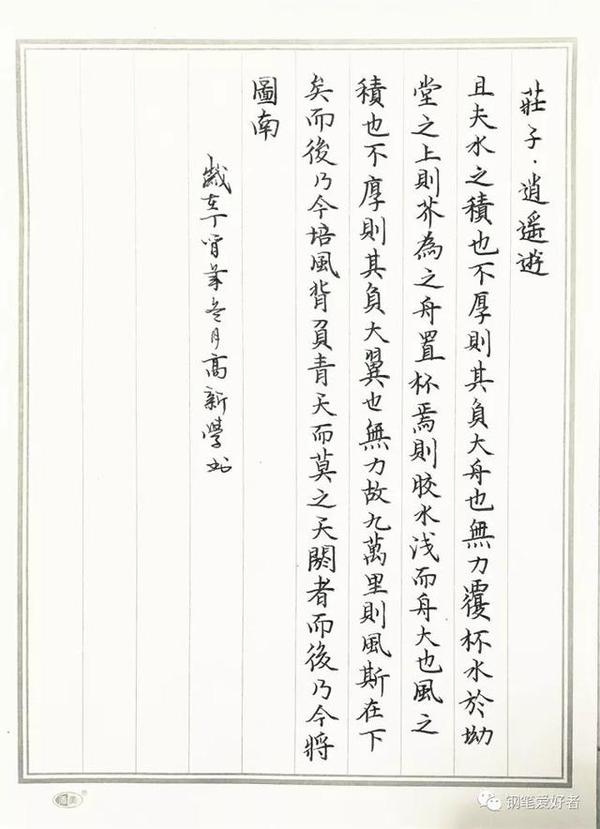 莊子·逍遥遊
且夫水之積也不厚則其負大舟也無力覆杯水於坳
堂之上則芥為之舟置杯焉則胶水浅而舟大也風之
積也不厚則其負大翼也無力故九萬里則風斯在下
矣而後乃今培風背負青天而莫之夭閼者而後乃今將
圖南
歲在年冬月高新學书
钢笔爱好者